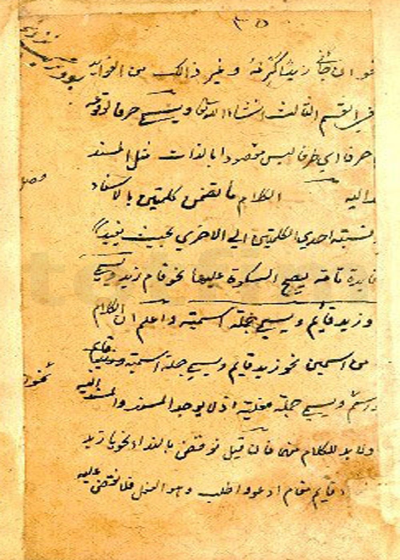 ٣٥
نحو ان جائني زيد اكرمته وغير ذالك من الفوايد
في القسم الثالث انشاء الله تعالى ويسمى حرفا لوقوعه
حرفا اي طرفا ليس مقصودا بالذات مثل المسند
اليه الكلام ما تضمن كلمتين بالاسناد
نسبته احدي الكلمتين الي الاخري بحيث يفيد
فايدة تامه يصح السكوة عليها نحو قام زيد ويسمى
وزيد قايم ويسمى جملة اسميته واعلم ان الكلام
من اسمين نحو زيد قايم ويسمى جملة اسميته
واسم ويسمى جملة فعلية اذ لا يوجد المسند والمسند اليه
ولا بد للكلام منهما فان قيل نوقض بالنداء نحو يا زيد
قايم مقام ادعو واطلب وهو الفعل فلا نقض عليه